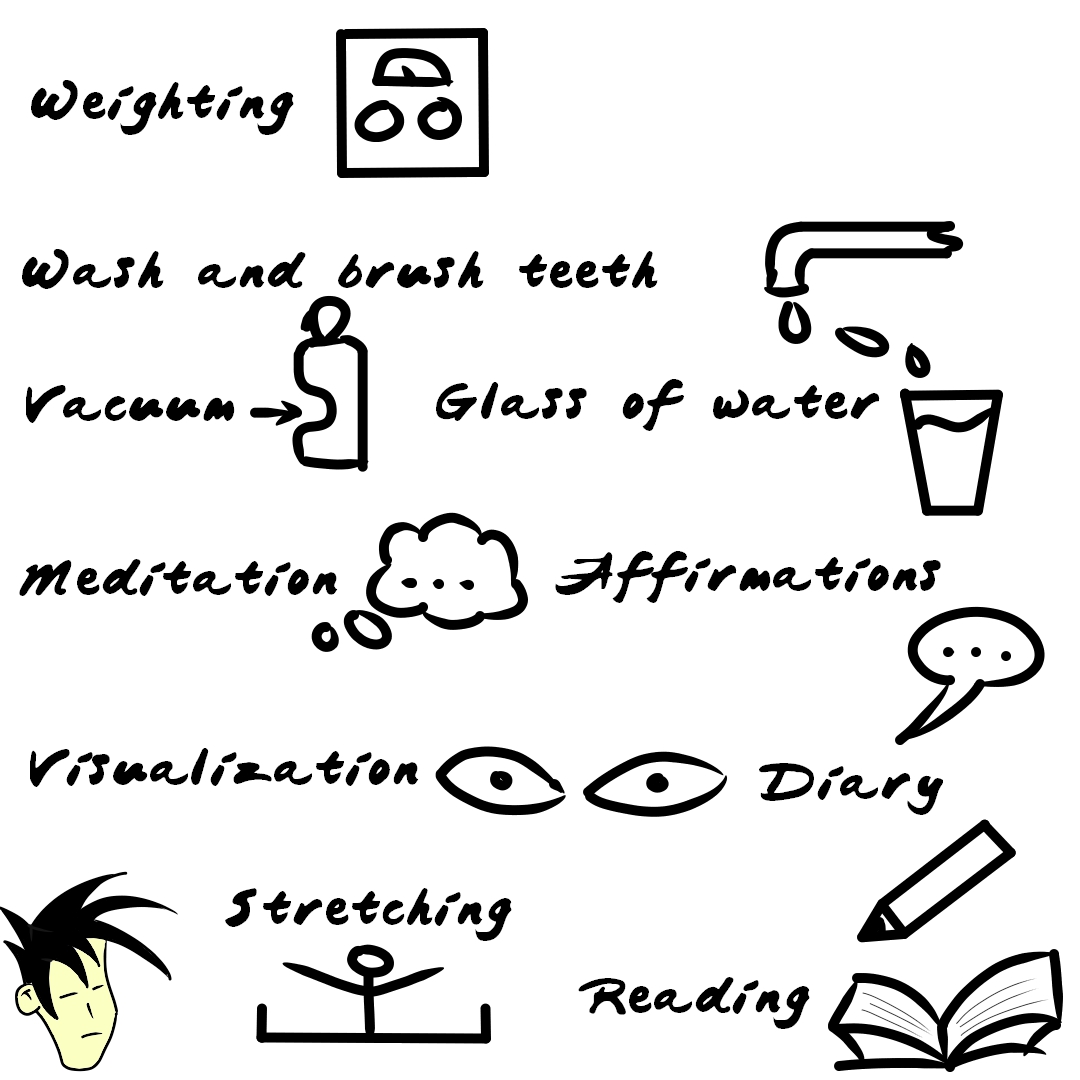 Weighting
Wash and brush teeth
Vacuum
Glass of water
Meditation
Affirmations
Visualization
Diary
Stretching
Reading